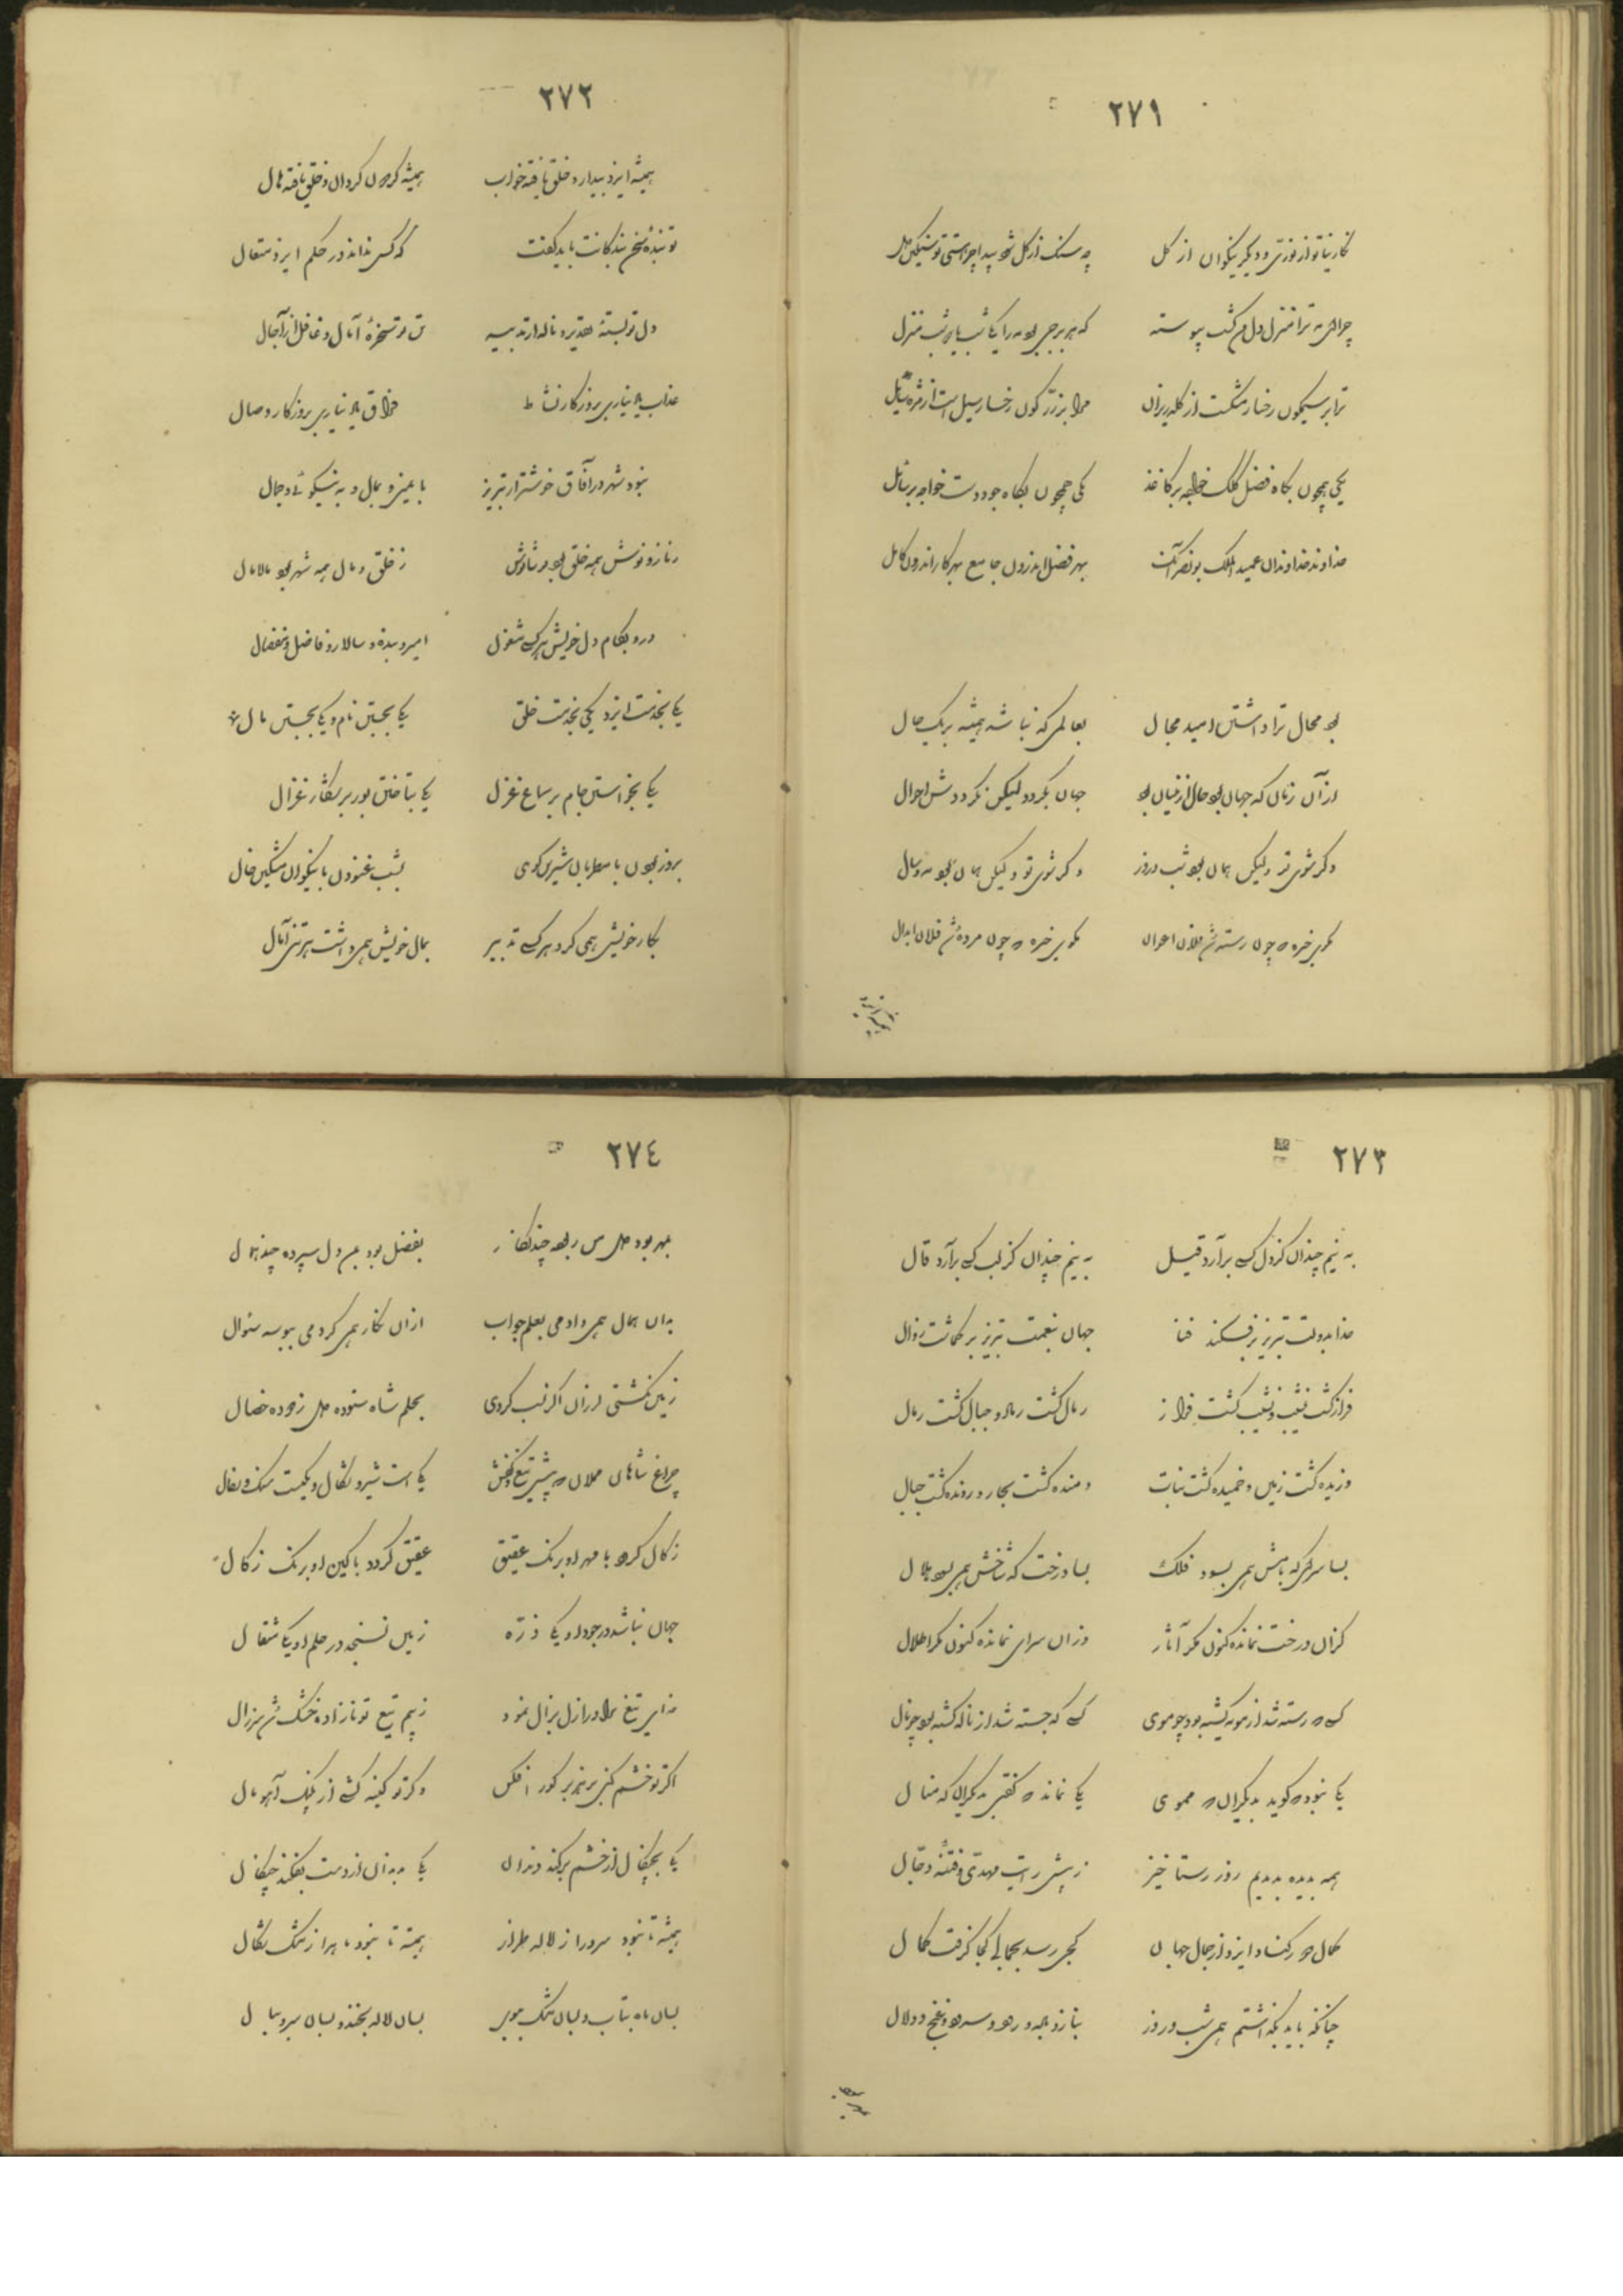 ٢٧١
نگارینا تو از نوری و دیگر نیکوان از گل
چه سنگ از گل شود پیدا چرا هستی تو سنگین دل
چرا ای مه ترا منزل دل من گشت پیوسته
که هر برجی بود مه را یکی شب یا دو شب منزل
ترا بر سیمگون رخسار مشکست از کله ریزان
مرا بر زرگون رخسار سیل است از مژه سایل
یکی همچون بگاه فضل کلک خواجه بر کاغذ
یکی همچون بگاه جود دست خواجه بر سائل
خداوند خداوندان عمید الملک بونصر آنک
بهر فضل اندرون جامع بهر کار اندرون کامل
بود محال ترا داشتن امید محال
بعالمی که نباشد همیشه بر یک حال
از آن زمان که جهان بود حال ازینسان بود
جهان بگردد لیکن نگرددش احوال
دگر شوی تو ولیکن همان بود شب و روز
دگر شوی تو ولیکن همان بود مه و سال
٢٧٢
همیشه ایزد بیدار و خلق یافته خواب
همیشه گردون گردان و خلق یافته هال
تو بنده سخن بندگانت باید گفت
که کس نداند در حکم ایزد متعال
دل تو بسته تدبیر و ناله از تدبیر
تن تو سخره آمال و غافل از آجال
عذاب یاد نیاری بروزگار نشاط
فراق یاد نیاری بروزگار وصال
نبود شهر در آفاق خوشتر از تبریز
بایمنی و بمال و به نیکوئی و جمال
ز ناز و نوش همه خلق بود نوشانوش
ز خلق و مال همه شهر بود مالامال
درو بکام دل خویش هر کسی مشغول
امیر و بنده و سالار و فاضل و مفضال
یکی بخدمت ایزد یکی بخدمت خلق
یکی بجستن نام و یکی بجستن مال
یکی بخواستن جام بر سماع غزل
یکی بتاختن یوز بر شکار غزال
بروز بودن با مطربان شیرین گوی
بشب غنودن با نیکوان مشکین خال
بکار خویش همی کرد هر کسی تدبیر
بمال خویش همی داشت هر تنی آمال
٢٧٣
به نیم چندان کز دل کسی برآرد قیل
به نیم چندان کز لب کسی برآرد قال
خدا بدولت تبریز برفکند فنا
جهان بنعمت تبریز برگماشت زوال
فراز گشت نشیب و نشیب گشت فراز
رمال گشت جبال و جبال گشت رمال
دریده گشت زمین و خمیده گشت نبات
دمنده گشت بحار و رونده گشت جبال
بسا سرای که بامش همی بسود فلک
بسا درخت که شاخش همی بسود هلال
کزان درخت نمانده کنون مگر آثار
وزان سرای نمانده کنون مگر اطلال
کسی که رسته شد از مویه گشته بود چو موی
کسی که جسته شد از ناله گشته بود چو نال
یکی نبود که گوید بدیگران که مموی
یکی نماند که گفتی بدیگران که منال
همه بدیده بدیدیم روز رستاخیز
ز پیش رایت مهدی و فتنه دجال
کمال دور کناد ایزد از جمال جهان
کجی رسد بجمالی کجا گرفت کمال
چنانکه باید بگذاشتم همی شب و روز
بناز و بهجه و رود و سرود و غنج و دلال
٢٧٤
بمهر بود دل من ربوده چند نگار
بفضل بود بمن دل سپرده چند همال
بدان همال همی دادمی بعلم جواب
ازان نگار همی کردمی ببوسه سئوال
زمین نگشتی لرزان اگر نسب کردی
بحلم شاه ستوده دل زدوده خصال
چراغ شاهان مملان که پیش تیغ و کفش
یکی است شیر و شگال و یکیست سنگ و سفال
زگال گردد با مهر او برنگ عقیق
عقیق گردد با کین او برنگ زگال
جهان نباشد در جود او یکی ذره
زمین نسنجد در حلم او یکی مثقال
خدای تیغ ترا در ازل بزال نمود
ز بیم تیغ تو نازاده خشک شد سر زال
اگر تو خشم کنی بر هژبر گور افکن
وگر تو کینه کشی از پلنگ آهو مال
یکی بچنگال از خشم برکند دندان
یکی بدندان از دست بفکند چنگال
همیشه تا نبود سرو را ز لاله طراز
همیشه تا نبود ماه را ز مشک شکال
بسان ماه بتاب و بسان مشک ببوی
بسان لاله بخند و بسان سرو ببال